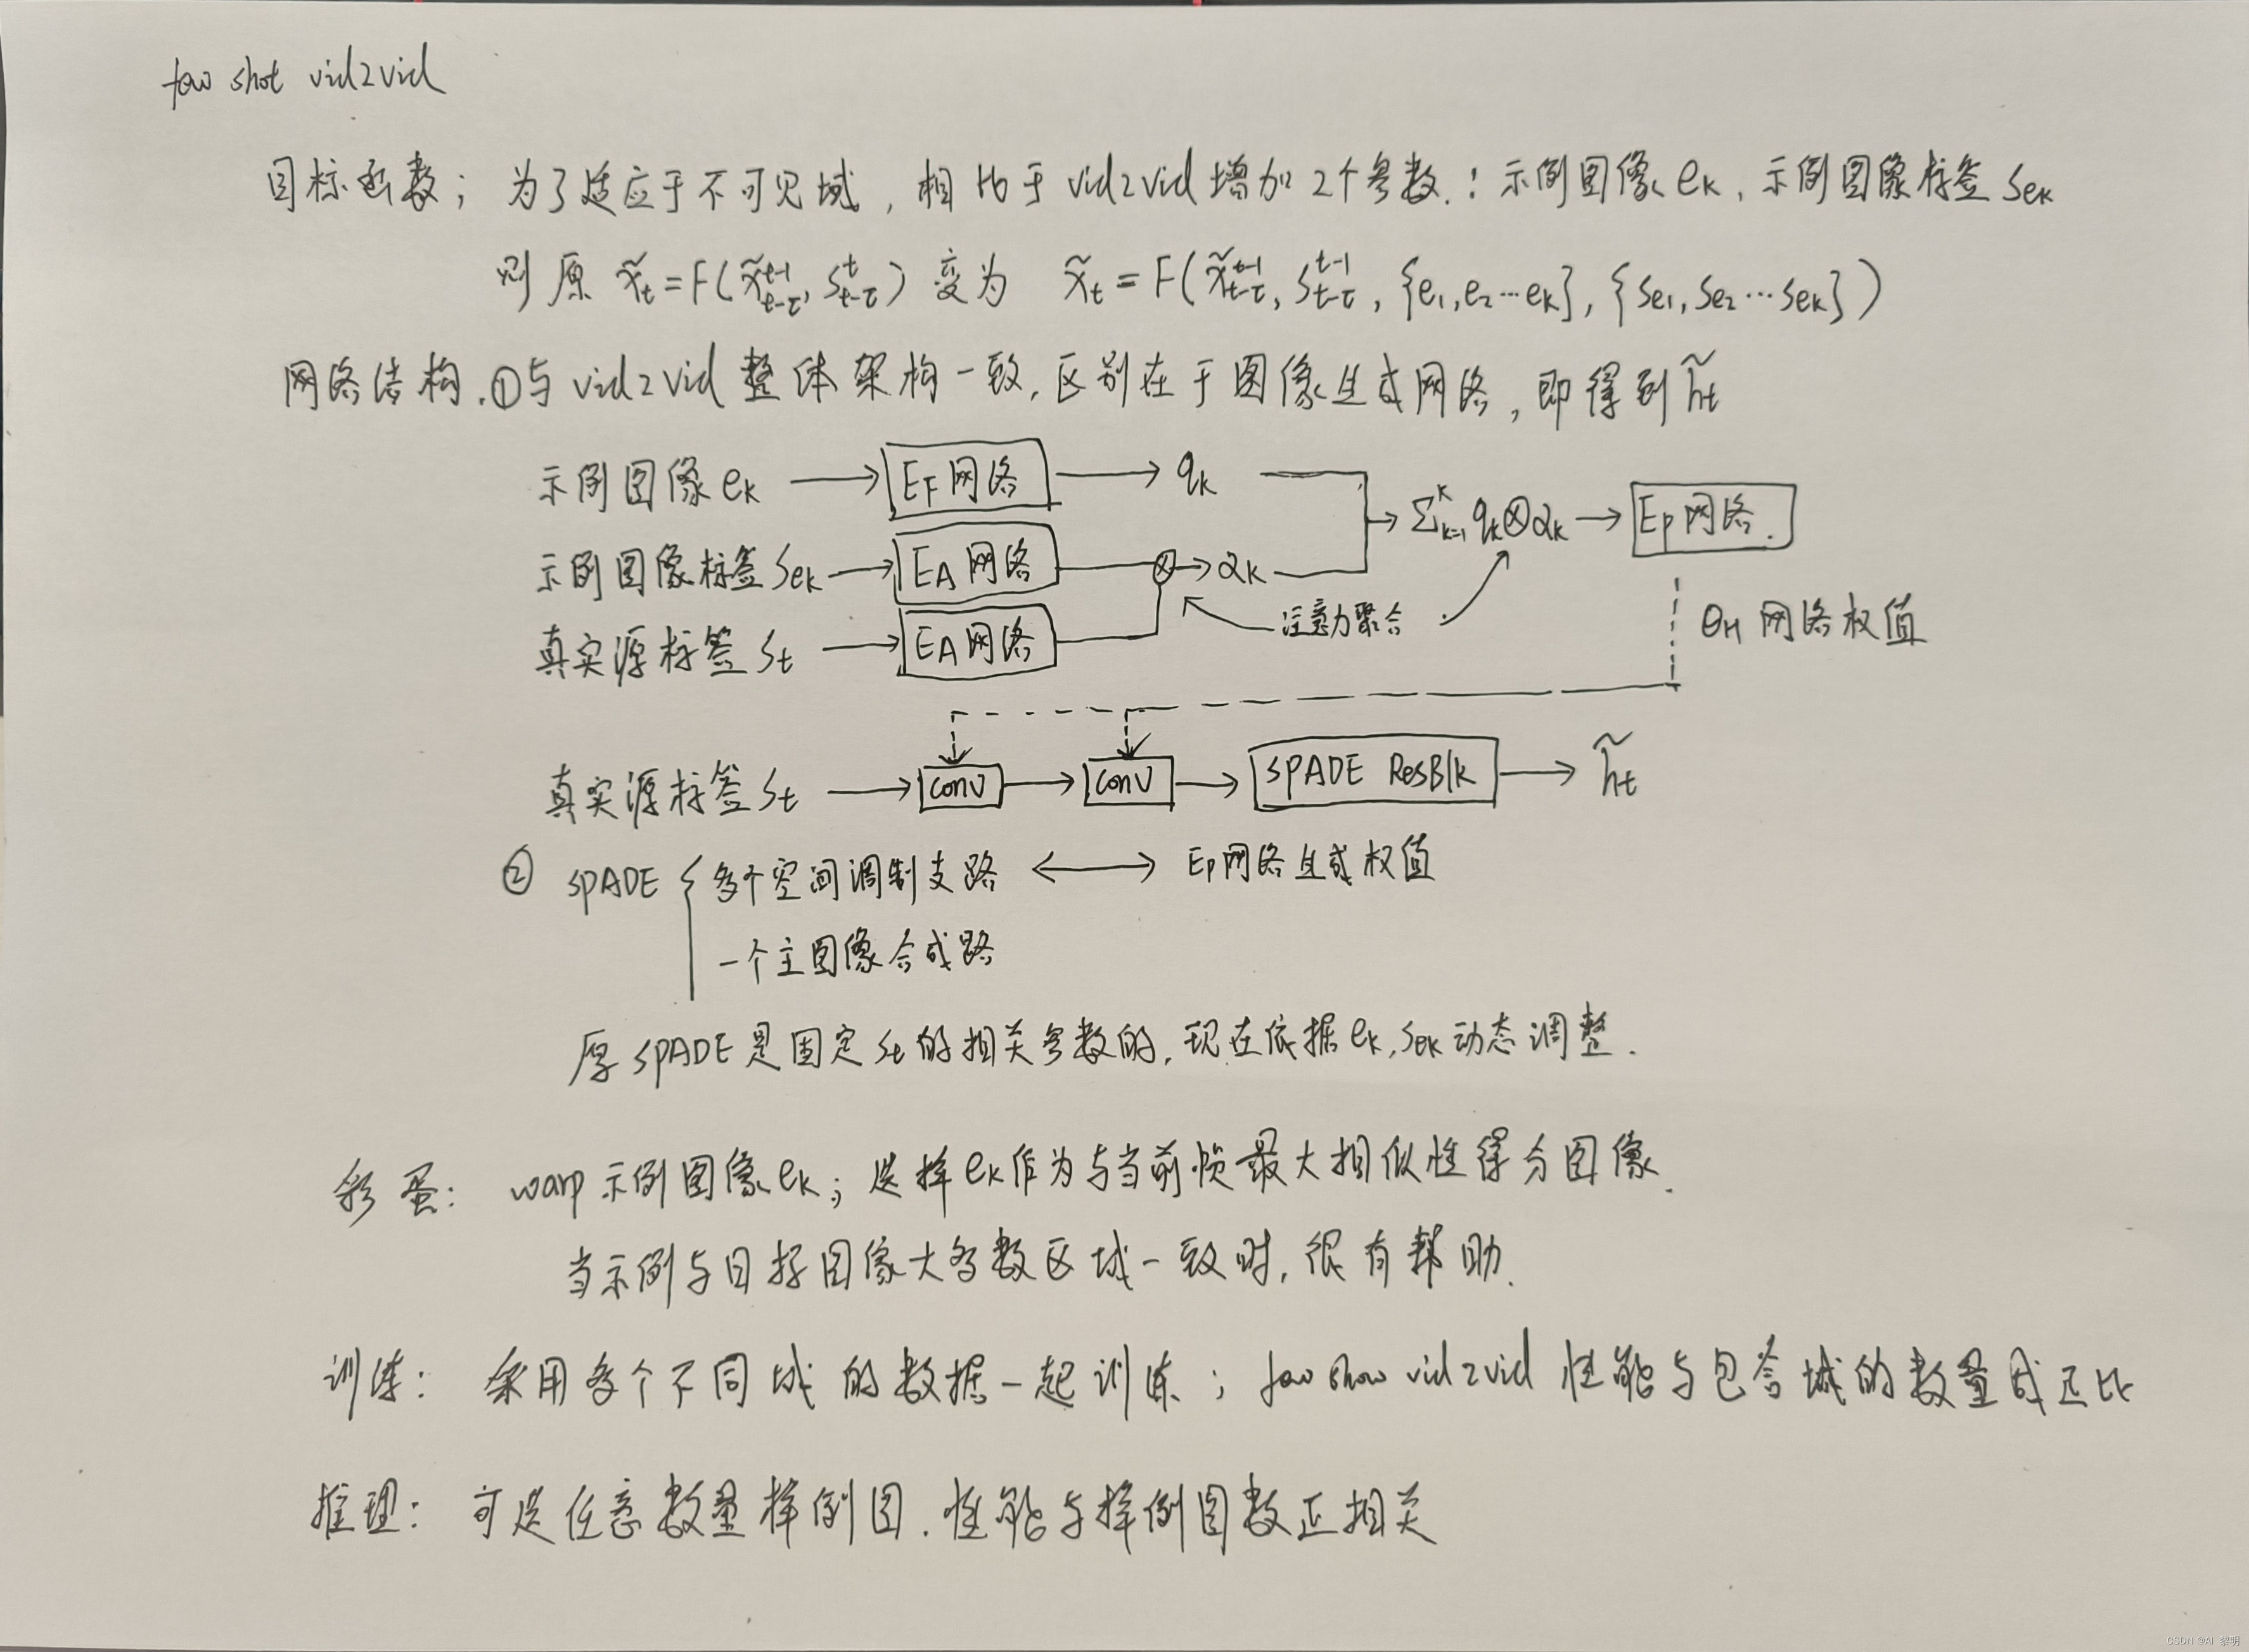 few shot vid2vid
目标函数; 为了适应于不可见域, 相比于vid2vid增加2个参数: 示例图像eₖ, 示例图像标签Seₖ
则原 x̃ₜ = F(x̃ₜ₋τᵗ⁻¹, Sₜ₋τᵗ) 变为 x̃ₜ = F(x̃ₜ₋τᵗ⁻¹, Sₜ₋τᵗ⁻¹, {e₁, e₂…eₖ}, {Se₁, Se₂…Seₖ})
网络结构. ①与vid2vid整体架构一致, 区别在于图像生成网络, 即得到h̃ₜ
示例图像eₖ → E_F网络 → qₖ
Σₖ₌₁ᴷ qₖ⊗αₖ → E_P网络.
示例图像标签Seₖ → E_A网络 ⊗→ αₖ
注意力聚合
θ_H 网络权值
真实源标签Sₜ → E_A网络
真实源标签Sₜ → conv → conv → SPADE ResBlk → h̃ₜ
② SPADE { 多个空间调制支路 ↔ E_P网络生成权值
一个主图像合成路
原SPADE是固定Sₜ的相关参数的, 现在依据eₖ, Seₖ动态调整.
彩蛋: warp示例图像eₖ; 选择eₖ作为与当前帧最大相似性得分图像.
当示例与目标图像大多数区域一致时, 很有帮助.
训练: 采用多个不同域的数据一起训练; few show vid2vid 性能与包含域的数量成正比
推理: 可选任意数量样例图. 性能与样例图数正相关
CSDN @AI 黎明